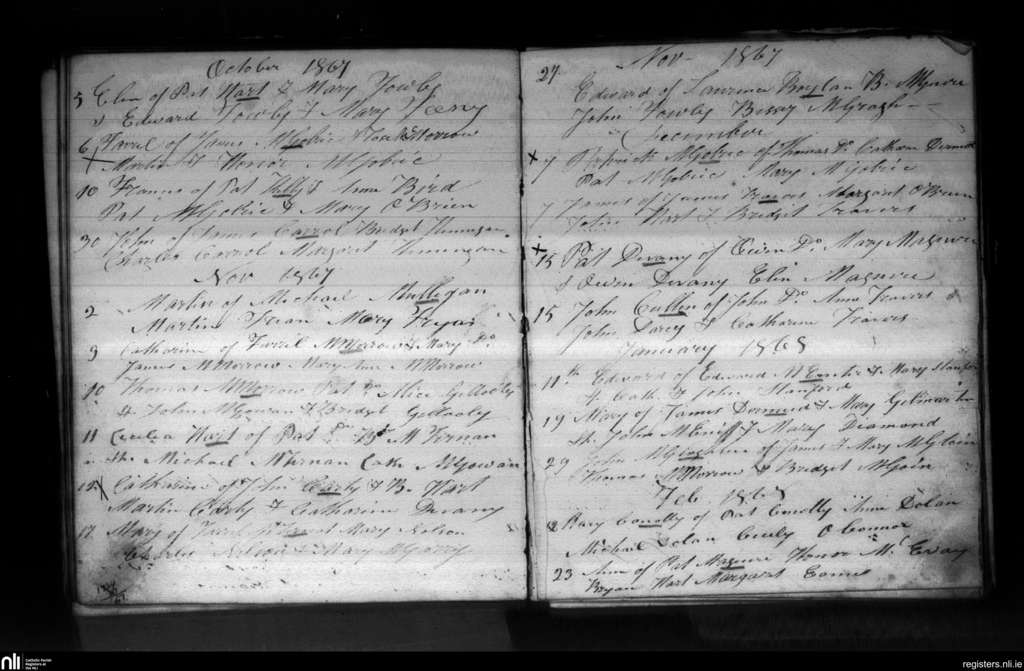 October 1867
5 Elin of Pat Hart & Mary Fowley
s Edward Fowley & Mary Feeny
6 Farrel of James McGobric Morrow
Martin & Honor McGobric
10 Francis of Pat Kelly & Anne Bird
Pat McGobric & Mary O Brien
30 John of James Carrol Bridget Finnegan
Charles Carrol Margaret Finnegan
Nov 1867
2 Martin of Michael Mulligan
Martin Mary
9 Catharine of Farrel McMorrow & Mary Do
James McMorrow Mary Ann McMorrow
10 Thomas McMorrow Pat Do Alice Gillooly
St John McGowan & Bridget Gillooly
11 Cecelea Hart of Pat Do McTernan
Michael McTernan Cath McGowan
12 Catharine of John Carty & B. Hart
Martin Carty & Catharine Devany
17 Mary of Mary Nelson
Charles Nelson & Mary McGarry
Nov 1867
27 Edward of Laurence Boylan B. McGuire
John Fowley Bessy
December
7 McGobric of Thomas Do Catharine Dermott
Pat McGobric Mary McGobric
7 James of James Travers Margaret O'Brien
John Hart & Bridget Travers
15 Pat Devany of Owen Do Mary Maguire
s Owen Devany Elin Maguire
15 John Cullen of John Do Anne Travers
John Darcy & Catharine Travers
January 1868
11th Edward of Edward & Mary Stanford
St Cath & John Stanford
19 Mary of James Dermied & Mary Gilmartin
St. John McEniff & Mary Diamond
29 John of James & Mary McGloin
Thomas McMorrow & Bridget McGoin
Feb 1868
Mary Conolly of Pat Conolly Anne Dolan
Michael Dolan Cicily O Connor
23 Ann of Pat Maguire Honor McEvay
Bryan Hart Margaret
nli
Catholic Parish
Registers at
the NLI
registers.nli.ie